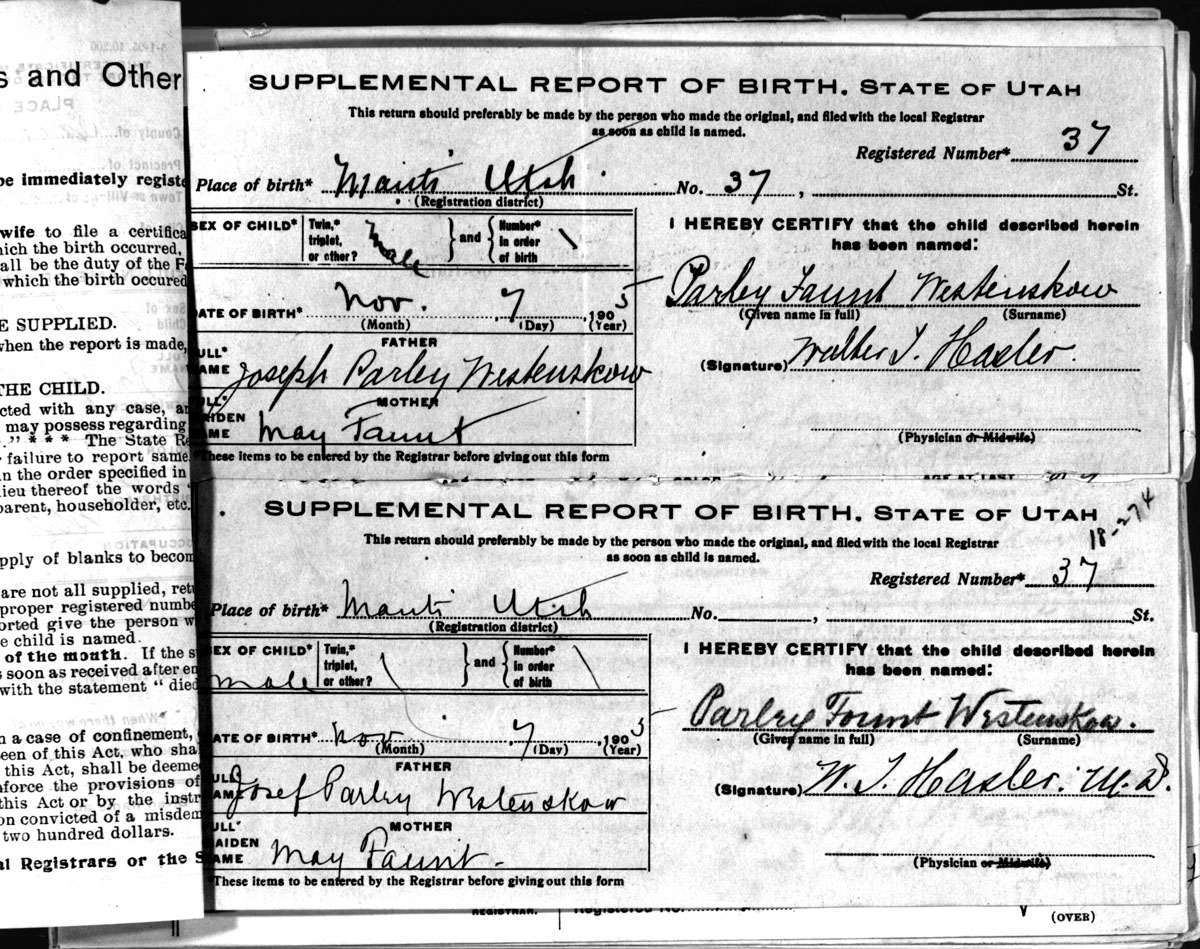 s and Other
PLACE
be immediately registe
wife to file a certifica
hich the birth occurred,
all be the duty of the F
which the birth occured
E SUPPLIED.
when the report is made,
THE CHILD.
cted with any case, a
may possess regarding
," * * * The State Re
failure to report same
in the order specified in
lieu thereof the words "
parent, householder, etc.
pply of blanks to becom
are not all supplied, retu
proper registered numbe
orted give the person w
e child is named.
of the month. If the s
s soon as received after en
with the statement "died
n a case of confinement,
een of this Act, who sha
this Act, shall be deeme
nforce the provisions of
this Act or by the instr
on convicted of a misdem
two hundred dollars.
al Registrars or the S
SUPPLEMENTAL REPORT OF BIRTH. STATE OF UTAH
This return should preferably be made by the person who made the original, and filed with the local Registrar
as soon as child is named.
Registered Number* 37
Place of birth* Manti Utah. No. 37, St.
(Registration district)
SEX OF CHILD* Twin,* triplet, or other? Male and Number* in order of birth \
DATE OF BIRTH* Nov. 7, 1905
(Month) (Day) (Year)
FATHER
FULL* NAME Joseph Parley Westenskow
MOTHER
FULL* MAIDEN NAME May Faunt
*These items to be entered by the Registrar before giving out this form
I HEREBY CERTIFY that the child described herein
has been named:
Parley Faunt Westenskow
(Given name in full) (Surname)
(Signature) Walter T. Hasler.
(Physician or Midwife)
SUPPLEMENTAL REPORT OF BIRTH. STATE OF UTAH
18-274
This return should preferably be made by the person who made the original, and filed with the local Registrar
as soon as child is named.
Registered Number* 37
Place of birth* Manti Utah No. , St.
(Registration district)
SEX OF CHILD* male Twin,* triplet, or other? \ and Number* in order of birth \
DATE OF BIRTH* Nov 7, 1905
(Month) (Day) (Year)
FATHER
FULL NAME Josef Parley Westenskow
MOTHER
FULL* MAIDEN NAME May Faunt.
*These items to be entered by the Registrar before giving out this form
I HEREBY CERTIFY that the child described herein
has been named:
Parley Fount Westenskow.
(Given name in full) (Surname)
(Signature) W. T. Hasler. M.D.
(Physician or Midwife)
REGISTRAR. Registered No.
(OVER)